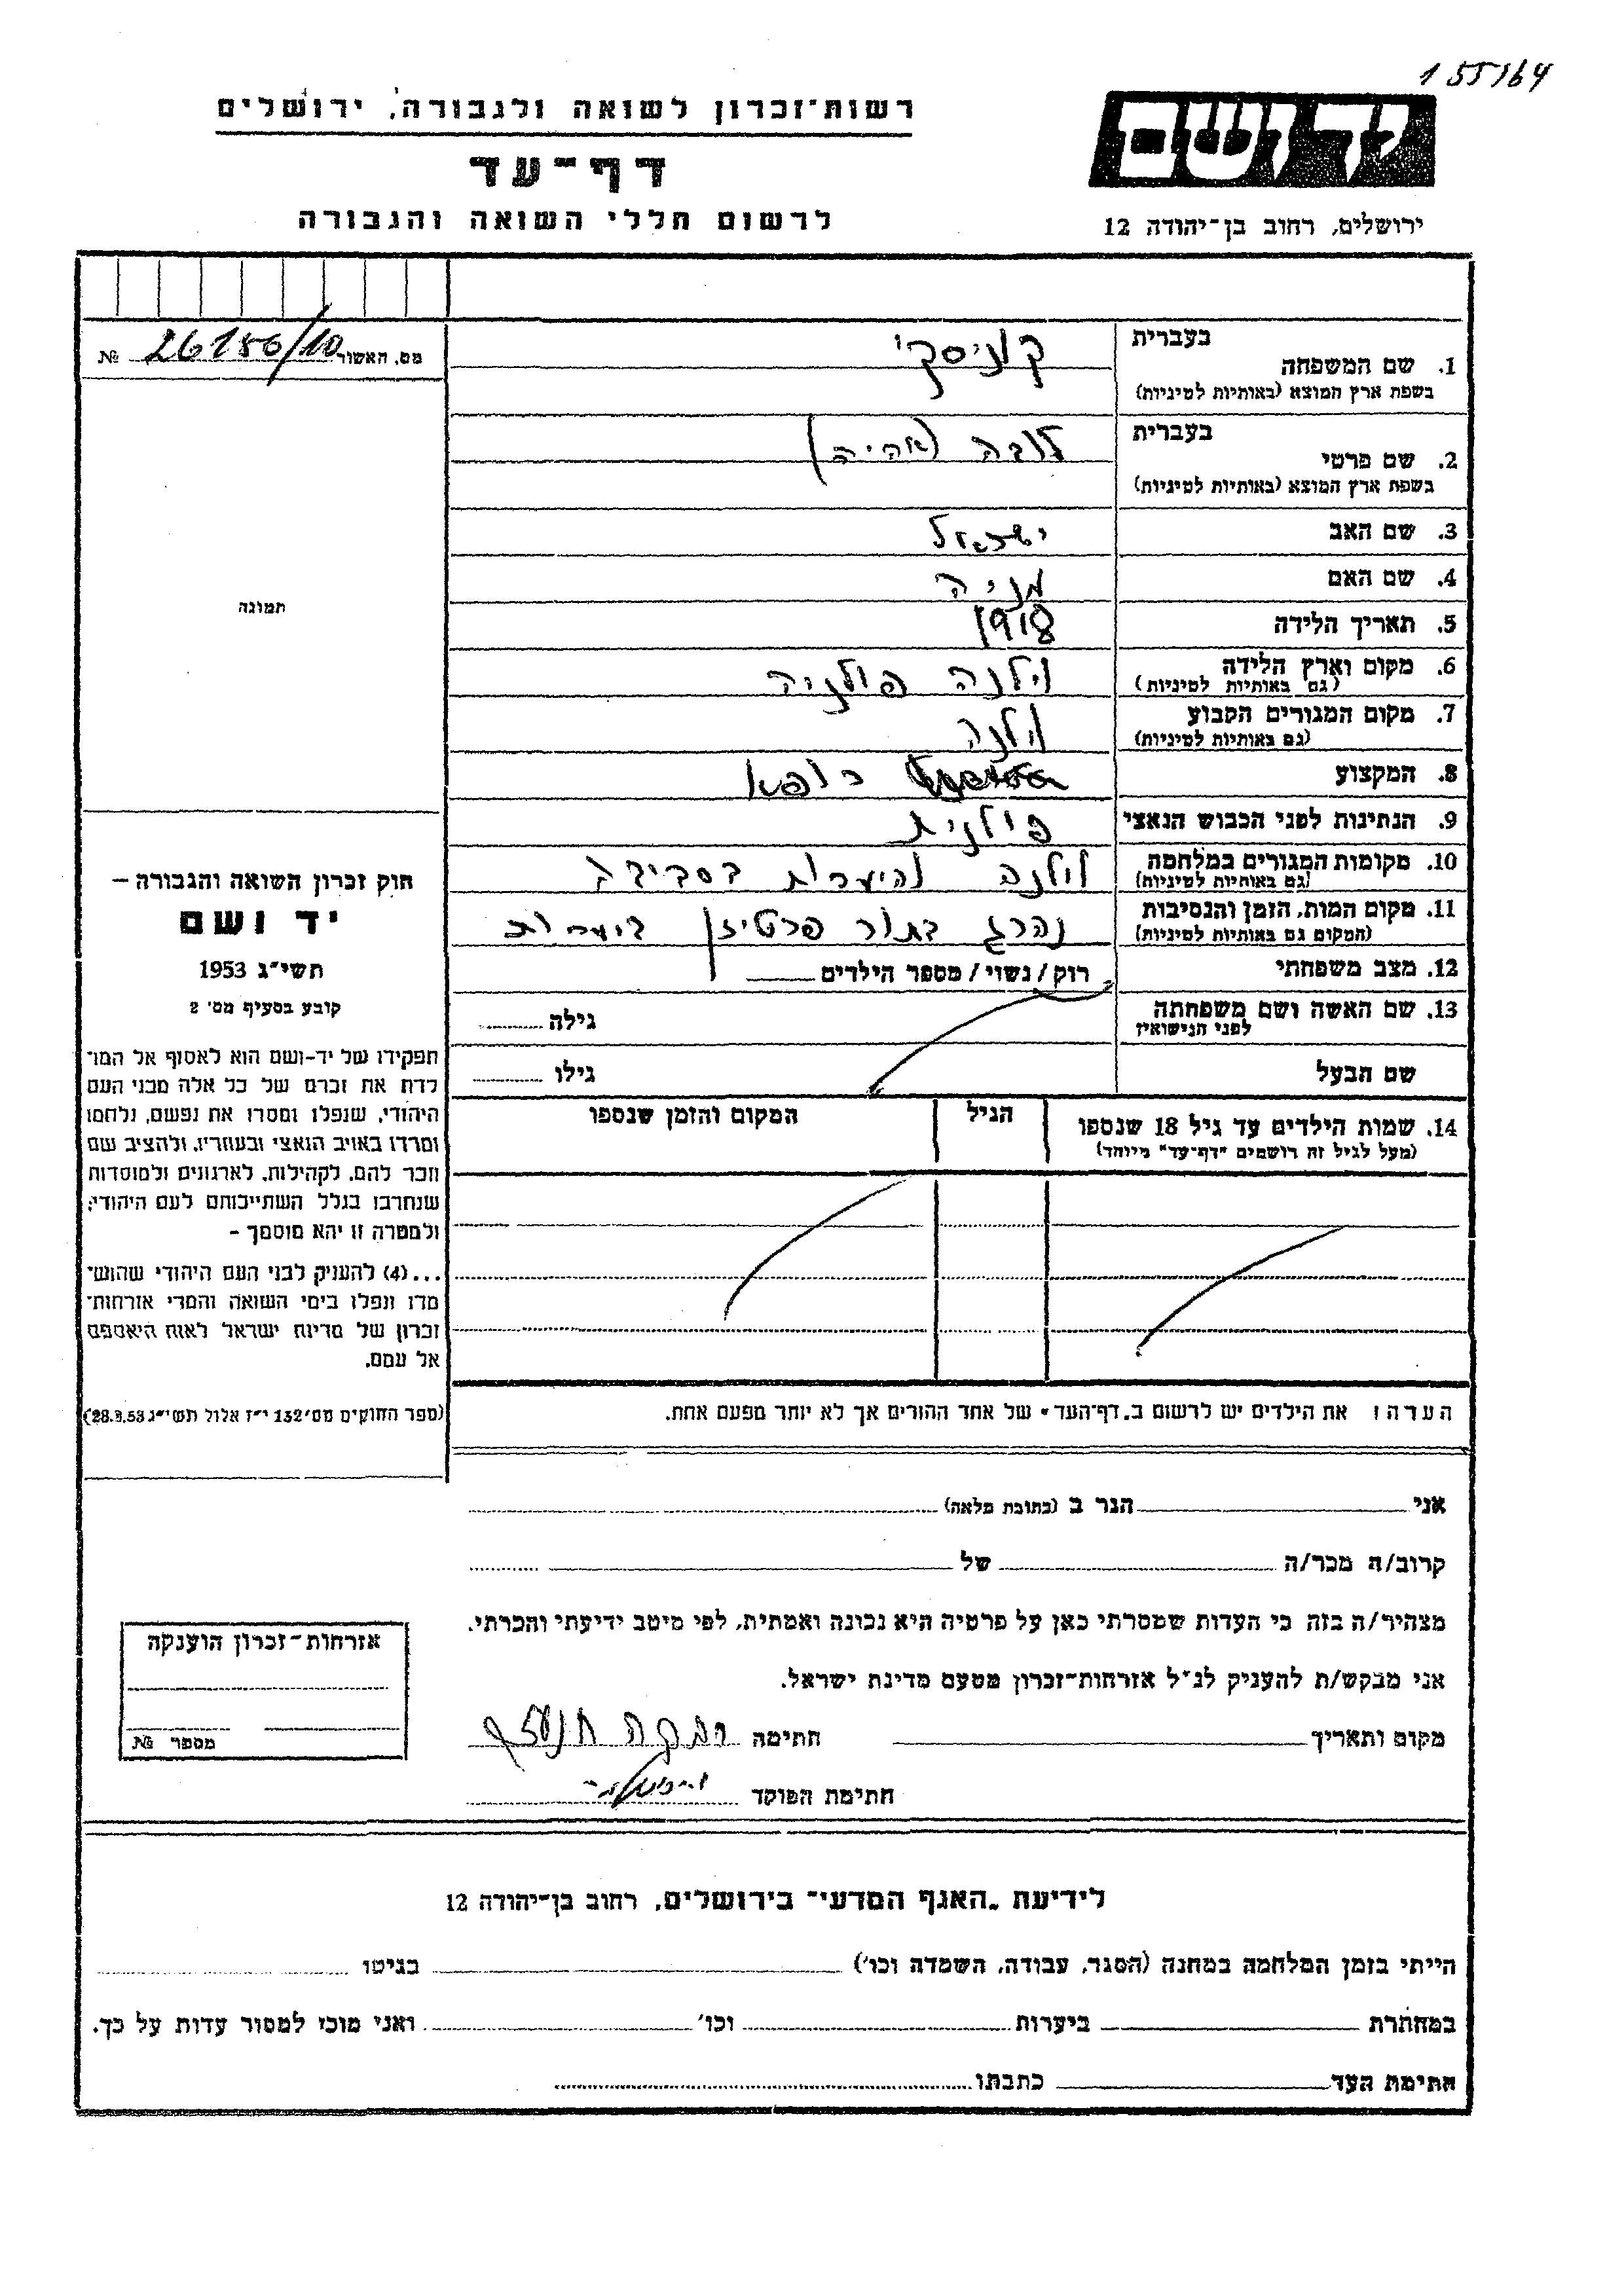 1 55164
רשות־זכרון לשואה ולגבורה, ירושלים
יד ושם
דף־עד
לרשום חללי השואה והגבורה
ירושלים, רחוב בן־יהודה 12
מס. האשור 26186/10 №
1. שם המשפחה בעברית
בשפת ארץ המוצא (באותיות לטיניות)
2. שם פרטי בעברית לובה
בשפת ארץ המוצא (באותיות לטיניות)
3. שם האב ישראל
4. שם האם מניה
5. תאריך הלידה 1918
6. מקום וארץ הלידה וילנה פולניה
(גם באותיות לטיניות)
7. מקום המגורים הקבוע וילנה
(גם באותיות לטיניות)
8. המקצוע רופא
9. הנתינות לפני הכבוש הנאצי פולנית
10. מקומות המגורים במלחמה וילנה והיערות בסביבה
(גם באותיות לטיניות)
11. מקום המות, הזמן והנסיבות נהרג בתור פרטיזן ביערות
(המקום גם באותיות לטיניות)
12. מצב משפחתי רוק/נשוי/מספר הילדים
13. שם האשה ושם משפחתה גילה
לפני הנישואין
שם הבעל גילו
14. שמות הילדים עד גיל 18 שנספו הגיל המקום והזמן שנספו
(מעל לגיל זה רושמים "דף־עד" מיוחד)
הערה: את הילדים יש לרשום ב„דף־העד" של אחד ההורים אך לא יותר מפעם אחת.
תמונה
חוק זכרון השואה והגבורה –
יד ושם
תשי"ג 1953
קובע בסעיף מס' 2
תפקידו של יד-ושם הוא לאסוף אל המו־
לדת את זכרם של כל אלה מבני העם
היהודי, שנפלו ומסרו את נפשם, נלחמו
ומרדו באויב הנאצי ובעוזריו, ולהציב שם
וזכר להם, לקהילות, לארגונים ולמוסדות
שנחרבו בגלל השתייכותם לעם היהודי;
ולמטרה זו יהא מוסמך –
...(4) להעניק לבני העם היהודי שהוש־
מדו ונפלו בימי השואה והמרי אזרחות־
זכרון של מדינת ישראל לאות היאספם
אל עמם.
(ספר החוקים מס' 132 י"ז אלול תשי"ג 28.8.53)
אני הגר ב (כתובת מלאה)
קרוב/ה מכר/ה של
מצהיר/ה בזה כי העדות שמסרתי כאן על פרטיה היא נכונה ואמתית, לפי מיטב ידיעתי והכרתי.
אני מבקש/ת להעניק לנ"ל אזרחות־זכרון מטעם מדינת ישראל.
מקום ותאריך חתימה רבקה
חתימת הפוקד
אזרחות־זכרון הוענקה
מספר №
לידיעת „האגף המדעי" בירושלים, רחוב בן־יהודה 12
הייתי בזמן המלחמה במחנה (הסגר, עבודה, השמדה וכו') בגיטו
במחתרת ביערות וכו' ואני מוכן למסור עדות על כך.
חתימת העד כתבתו